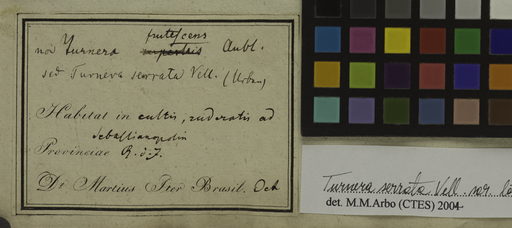 frutescens
non Turnera rupestris Aubl.
sed Turnera serrata Vell. (Urban)
Habitat in cultis, ruderatis ad
Sebastianopolin
Provinciae R. d. J.
Dr. Martius Iter Brasil. Oct
Turnera serrata Vell. var.
det. M.M.Arbo (CTES) 2004